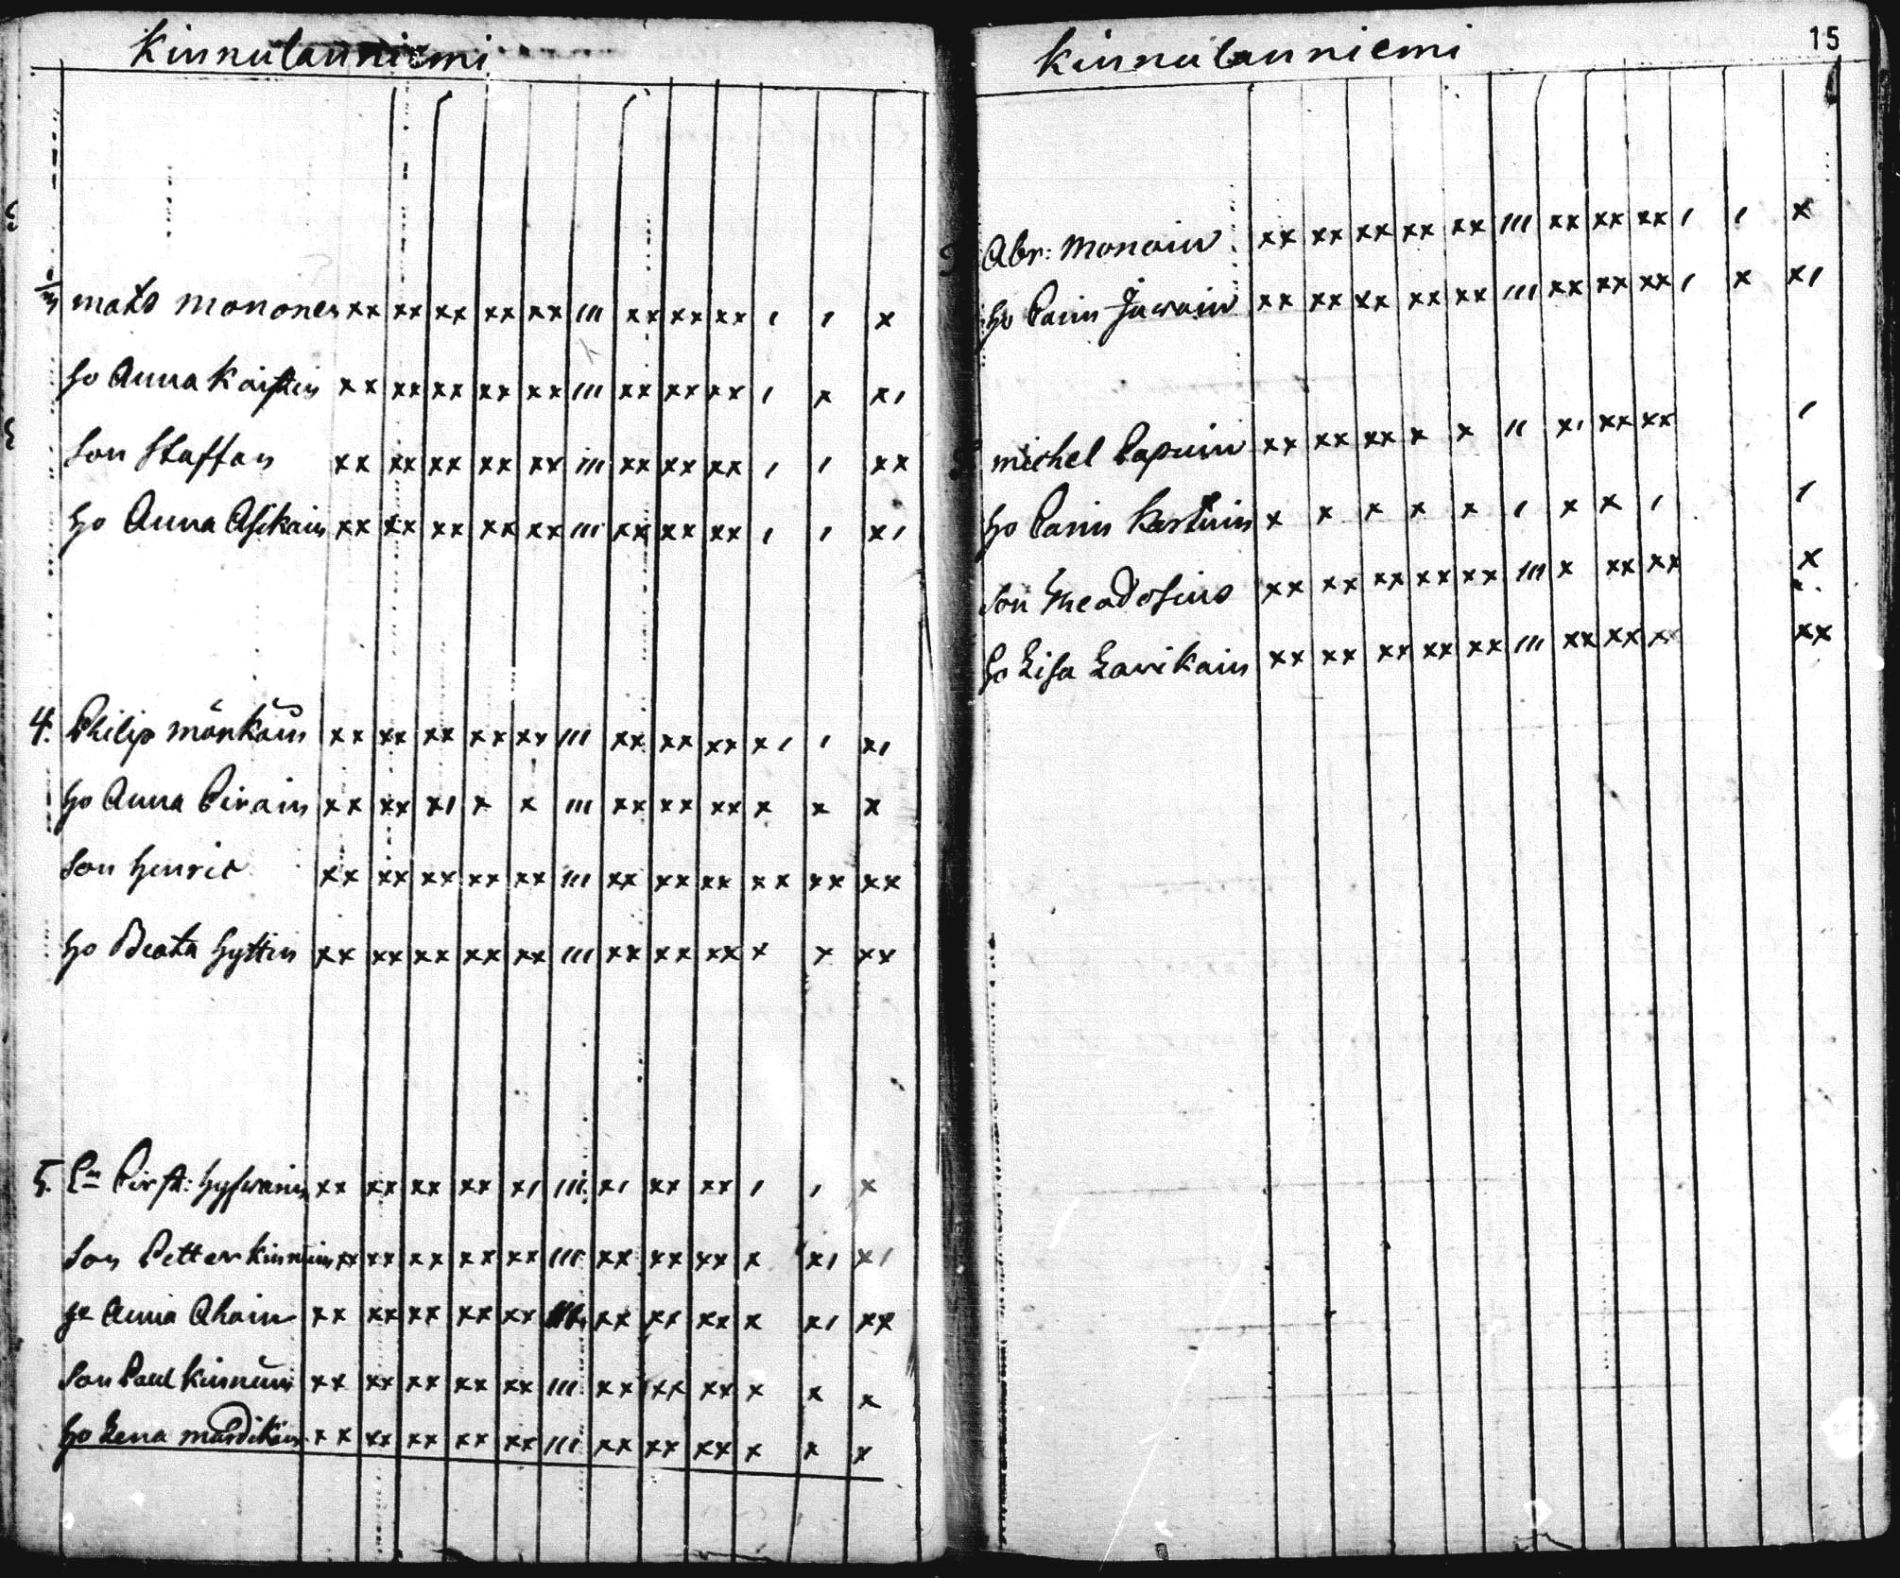 Kinnulanniemi
mats Monones xx xx xx xx xx ııı xx xx xx ı ı x
ho Anna Kaistin xx xx xx xx xx ııı xx xx xx ı x xı
Son Staffan xx xx xx xx xx ııı xx xx xx ı ı xx
ho Anna Asikain xx xx xx xx xx ııı xx xx xx ı ı xı
4. Philip mönkäin xx xx xx xx xx ııı xx xx xx xı ı xı
ho Anna Pirain xx xx xı x x ııı xx xx xx x x x
Son Henric xx xx xx xx xx ııı xx xx xx xx xx xx
ho Beata Hyttin xx xx xx xx xx ııı xx xx xx x x xx
5. Hyfwänin xx xx xx xx xı ııı xı xx xx ı ı x
Son Petter Kinnuin xx xx xx xx xx ııı xx xx xx x xı xı
ho Anna Ahain xx xx xx xx xx xx xx xx x xı xx
Son Paul Kinnuin xx xx xx xx xx ııı xx xx xx x x x
ho Lena mardikain xx xx xx xx xx ııı xx xx xx x x x
Kinnulanniemi 15
Abr: Monoin xx xx xx xx xx ııı xx xx xx ı ı x
ho Carin Jäwäin xx xx xx xx xx ııı xx xx xx ı x xı
michel xx xx xx x x ıı xı xx xx ı
ho Carin x x x x x ı x x ı ı
Son Theadosius xx xx xx xx xx ııı x xx xx x
ho Lisa Lavikain xx xx xx xx xx ııı xx xx xx xx